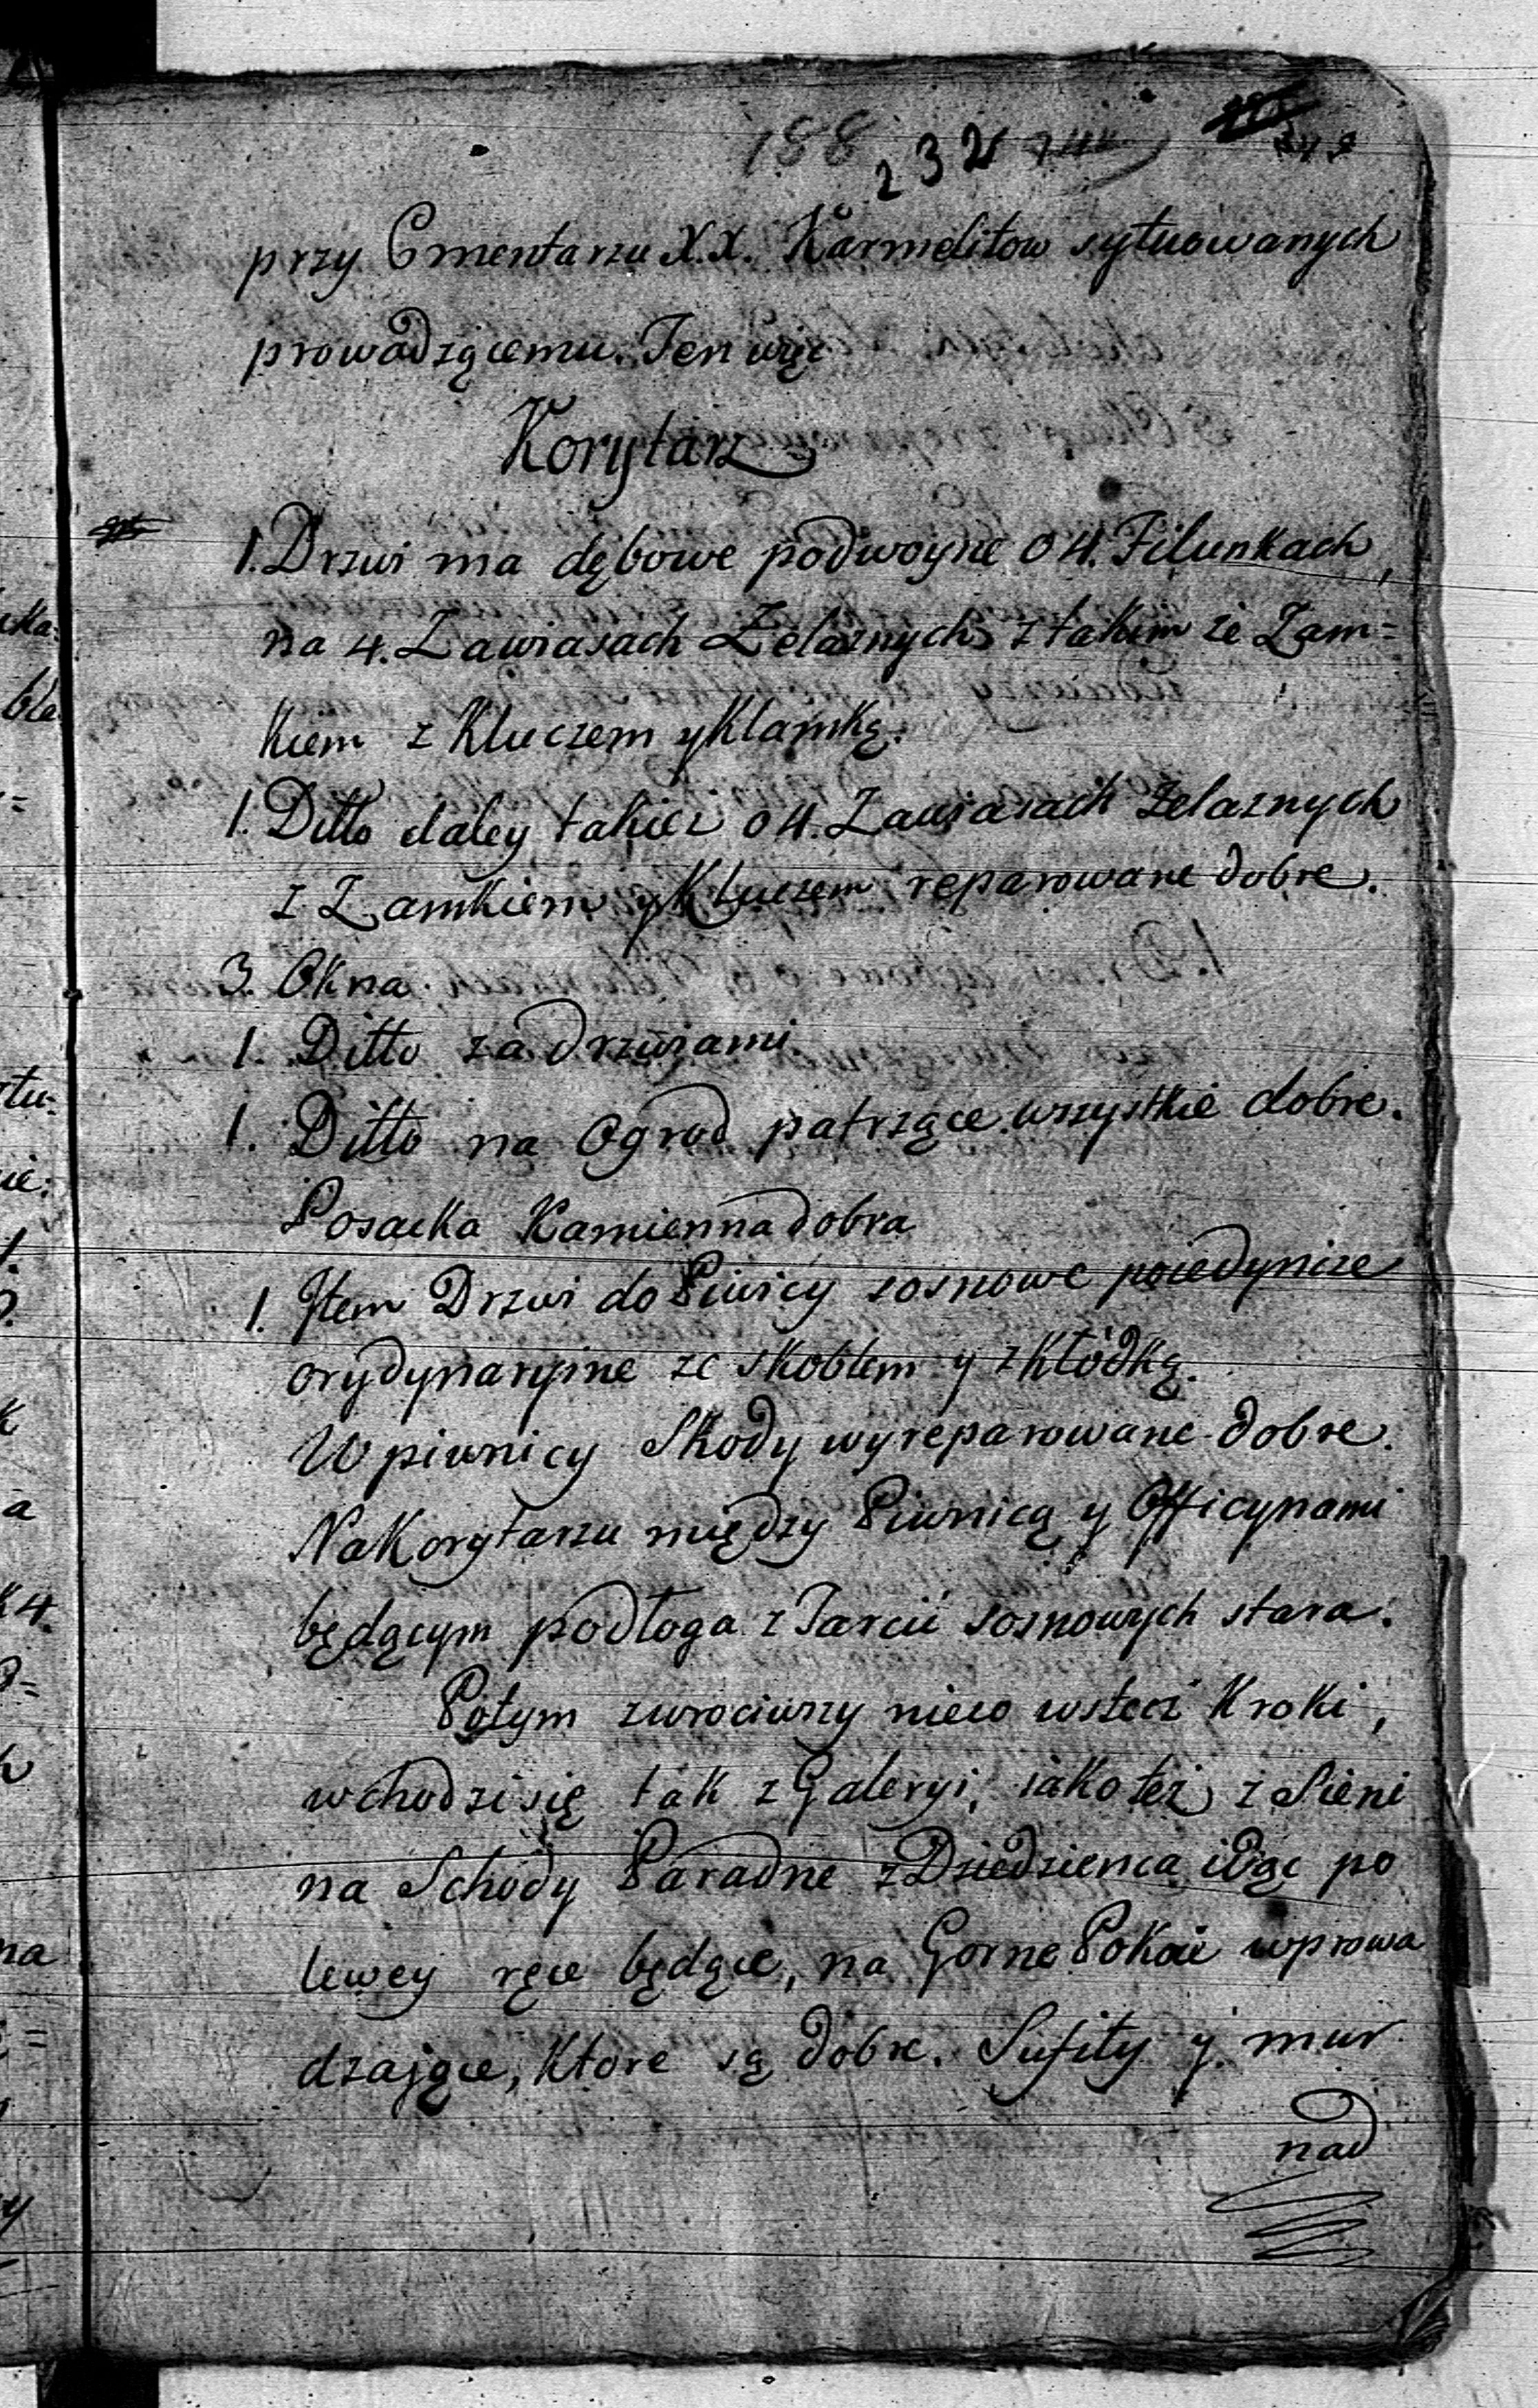 188 232
przy Cmentarzu X.X. Karmelitow sytuowanych
prowadzącemu. Ten więc
Korytarz
1. Drzwi ma dębowe podwoyne o 4. Filunkach,
na 4. Zawiasach Żelaznych, z takim że Zam=
kiem z Kluczem y Klamką.
1. Ditto daley takież o 4. Zawiasach żelaznych
z Zamkiem y Kluczem reparowane dobre.
3. Okna.
1. Ditto za drzwiami
1. Ditto na Ogrod patrzące wszystkie dobre.
Posacka Kamienna dobra
1. Item Drzwi do Piwicy sosnowe poiedyncze
orydynaryine ze skoblem y z Kłódką.
W piwnicy Skody wyreparowane dobre.
Na Korytarzu między Piwnicą y Officynami
będącym podłoga z Tarcić sosnowych stara.
Potym zwrociwszy nieco wstecz Kroki,
wchodzi się tak z Galeryi, iako też z Sieni
na Schody Paradne z Dziedzienca idąc po
lewey ręce będące, na Gorne Pokoie wprowa
dzające, które są dobre. Sufity y mur
nad